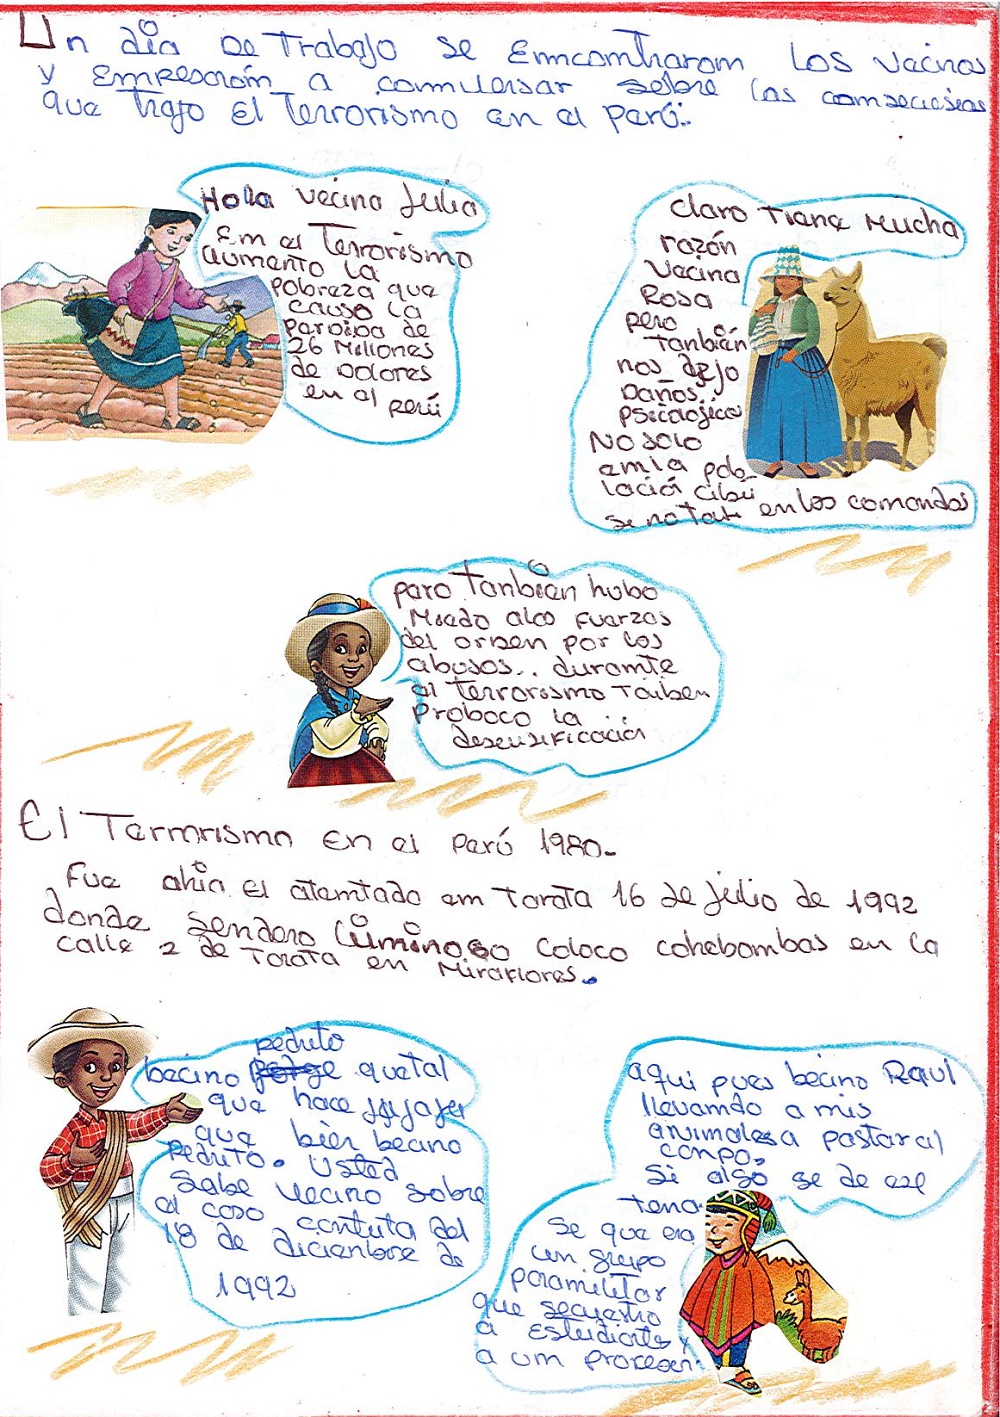 Un dia De Trabajo se Emcomtrarom Los vecinos
y Empesarón a comversar sobre las comseciesias
que trajo El Terrorismo en el Perú.
Hola vecina Julia
Em el Terrorismo
aumento la
pobreza que
causo la
paroida de
26 Millones
de Dolores
en el perú
claro tiene Mucha
razón
Vecina
Rosa
pero
tanbién
nos dejo
Daños
psicologicos
No solo
em la pob
lación cibil
se notalo en los comandos
pero tanbien hubo
Miedo alas Fuerzas
del orden por los
abusos.. duramte
el terrorismo Tanben
Proboco la
desensificación
El Terrorismo En el Perú 1980-
Fue ahia El atemtado em Tarata 16 de julio de 1992
donde Sendero Luminoso coloco cohebombas en la
calle 2 de Tarata en Miraflores.
peduto
becino Jorge quetal
que hace jajajer
que bien becino
Peduto. Usted
Sabe Vecino sobre
el caso cantuta del
18 de diciembre de
1992
aqui pues becino Raul
llevamdo a mis
animales a pastar al
canpo.
Si algo se de ese
tena
se que era
un grupo
paramilitar
que secuestro
a Estudiantes y
a um profesor